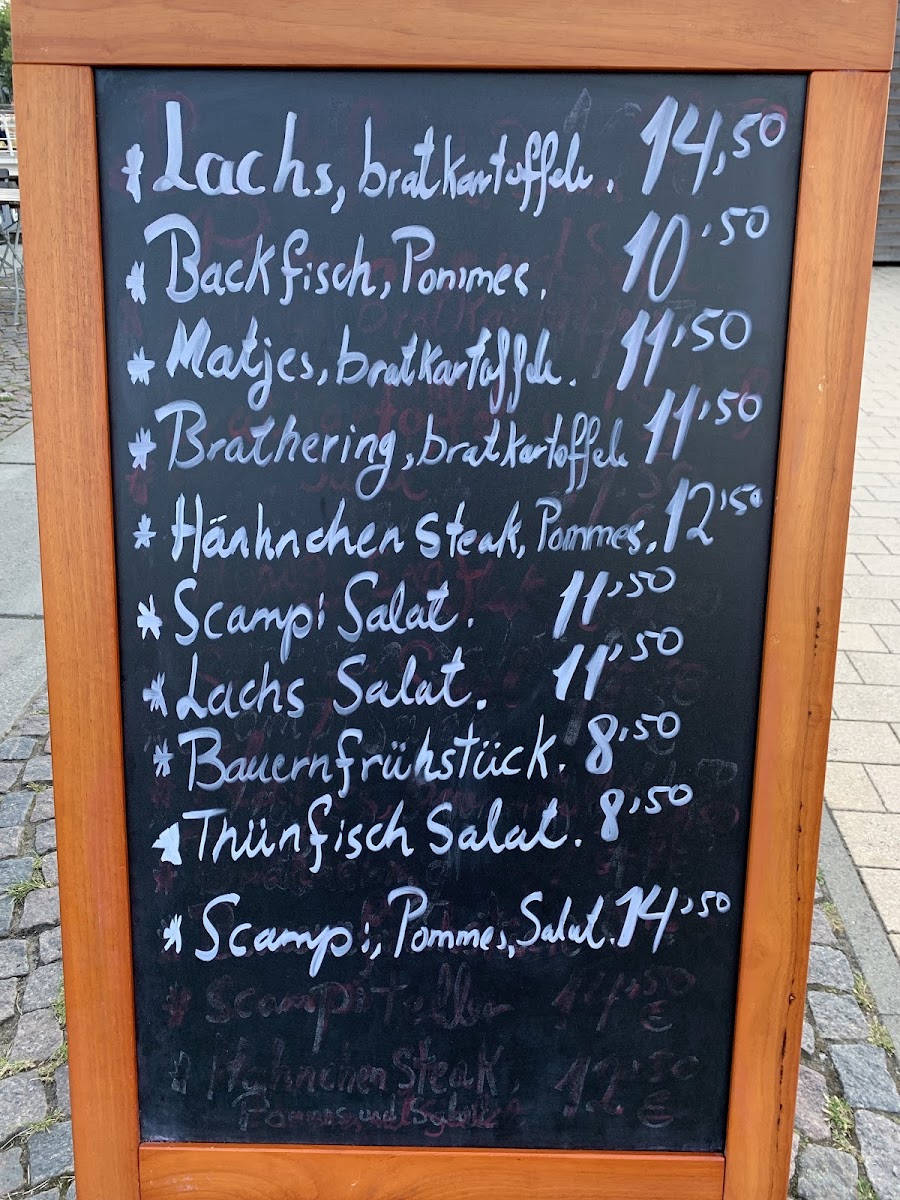 * Lachs, bratkartoffeln. 14,50
* Backfisch, Pommes. 10,50
* Matjes, bratkartoffeln. 11,50
* Brathering, bratkartoffeln 11,50
* Hänhnchen Steak, Pommes. 12,50
* Scampi Salat. 11,50
* Lachs Salat. 11,50
* Bauernfrühstück. 8,50
* Thünfisch Salat. 8,50
* Scampi, Pommes, Salat. 14,50
* Scampi Teller 14,50 €
* Hähnchen Steak, 12,50 €